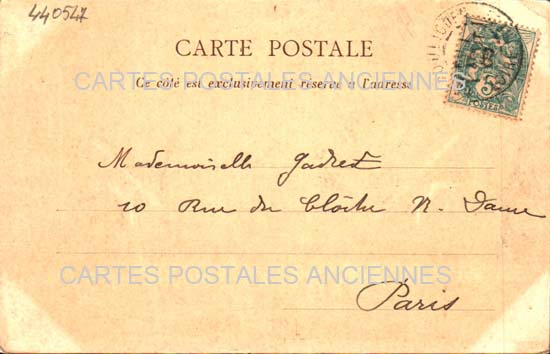 440547
CARTE POSTALE
CARTES POSTALES ANCIENNES
Ce côté est exclusivement réservé à l'adresse
5
POSTES
Mademoiselle
10 Rue du Cloître N. Dame
CARTES POSTALES ANCIENNES
Paris